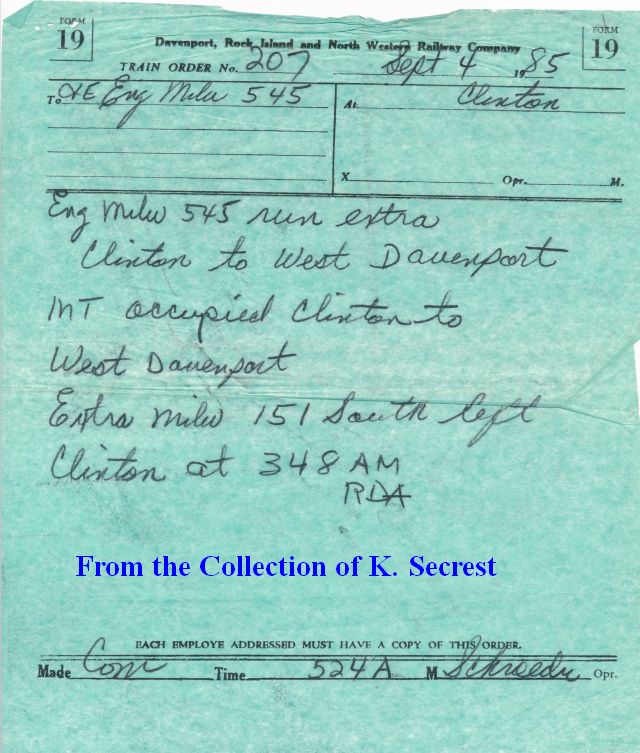 FORM 19
Davenport, Rock Island and North Western Railway Company
FORM 19
TRAIN ORDER No. 207 Sept 4 1985
To C&E Eng Milw 545
At Clinton
X Opr. M.
Eng Milw 545 run extra
Clinton to West Davenport
MT occupied Clinton to
West Davenport
Extra Milw 151 South left
Clinton at 348 AM
RDA
From the Collection of K. Secrest
EACH EMPLOYE ADDRESSED MUST HAVE A COPY OF THIS ORDER.
Made Com Time 524 A M Schroeder Opr.